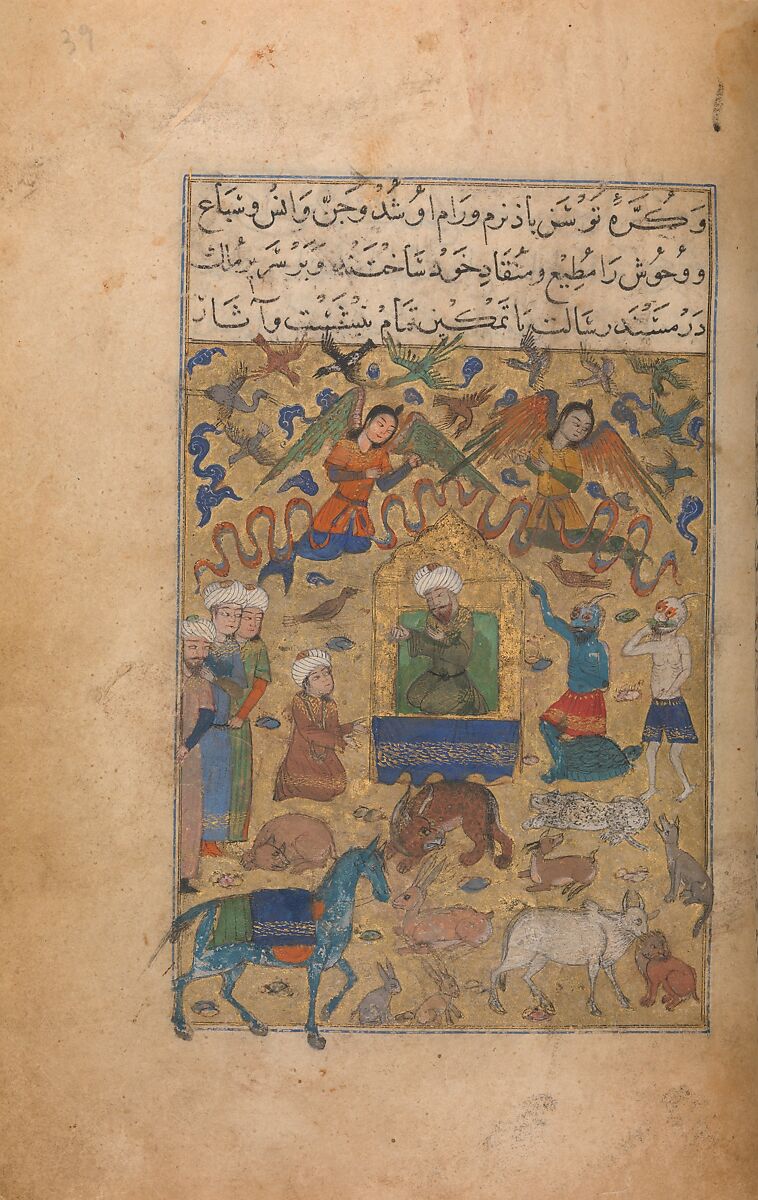 39
وَكُرَّهٔ تَوْسَنِ باذ نرم و رَام او شُد وَجِنّ وَاِنس وسِبَاع
و وُحُوش رَا مُطِيع و مُنقَادِ خَود سَاختَند وَبَرْ سَرِيرِ مُلك
دَر مَسْنَدِ رِسَالت بَا تَمكِين تمَام بنِشَست وآثار